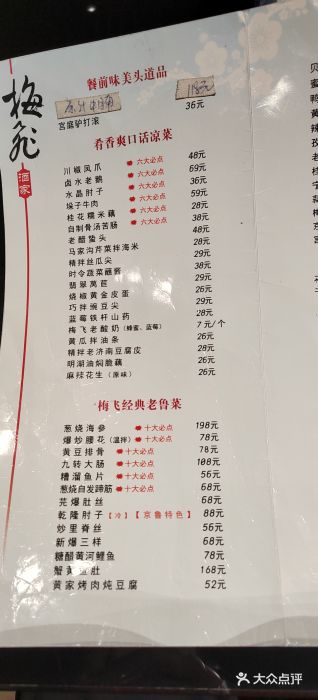 梅飞
酒家
餐前味美头道品
118元
宫庭驴打滚 36元
肴香爽口话凉菜
川椒凤爪 六大必点 48元
卤水老鹅 六大必点 69元
水晶肘子 六大必点 36元
垛子牛肉 六大必点 59元
桂花糯米藕 六大必点 28元
自制骨汤苦肠 六大必点 38元
老醋蛰头 48元
马家沟芹菜拌海米 28元
精拌丝瓜尖 38元
时令蔬菜蘸酱 38元
翡翠莴苣 29元
烧椒黄金皮蛋 26元
巧拌豌豆尖 29元
蓝莓铁杆山药 28元
梅飞老酸奶（蜂蜜、蓝莓） 7元/个
黄瓜拌油条 26元
精拌老济南豆腐皮 28元
明湖油焖脆藕 26元
麻辣花生（原味） 26元
梅飞经典老鲁菜
葱烧海参 十大必点 198元
爆炒腰花（温拌） 十大必点 78元
黄豆排骨 十大必点 78元
九转大肠 十大必点 108元
糟溜鱼片 十大必点 56元
葱烧自发蹄筋 十大必点 68元
芫爆肚丝 68元
乾隆肘子【冷】【京鲁特色】 88元
炒里脊丝 56元
新爆三样 68元
糖醋黄河鲤鱼 78元
蟹黄鱼肚 168元
黄家烤肉炖豆腐 52元
大众点评